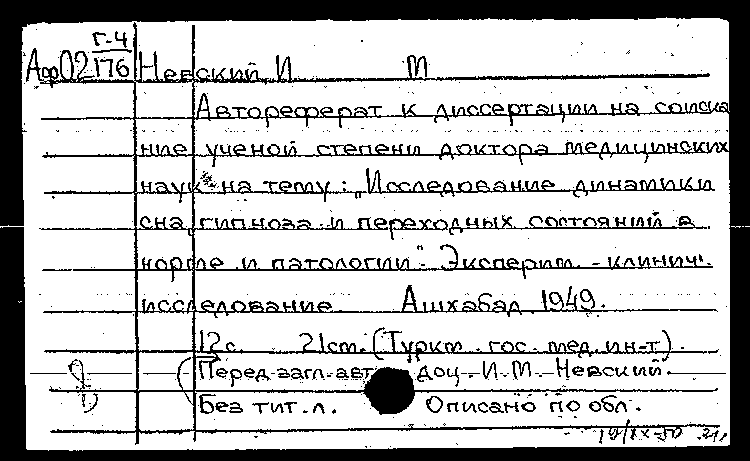 Г-4
Аф02 176 Невский, И М
Автореферат к диссертации на соиска
ние ученой степени доктора медицинских
наук на тему: „Исследование динамики
сна, гипноза и переходных состояний в
норме и патологии". Эксперим. - клинич.
исследование. Ашхабад, 1949.
12с. 21cm. (Туркм. гос. мед. ин-т).
Перед загл. авт. доц. И. М. Невский.
Без тит. л. Описано по обл.